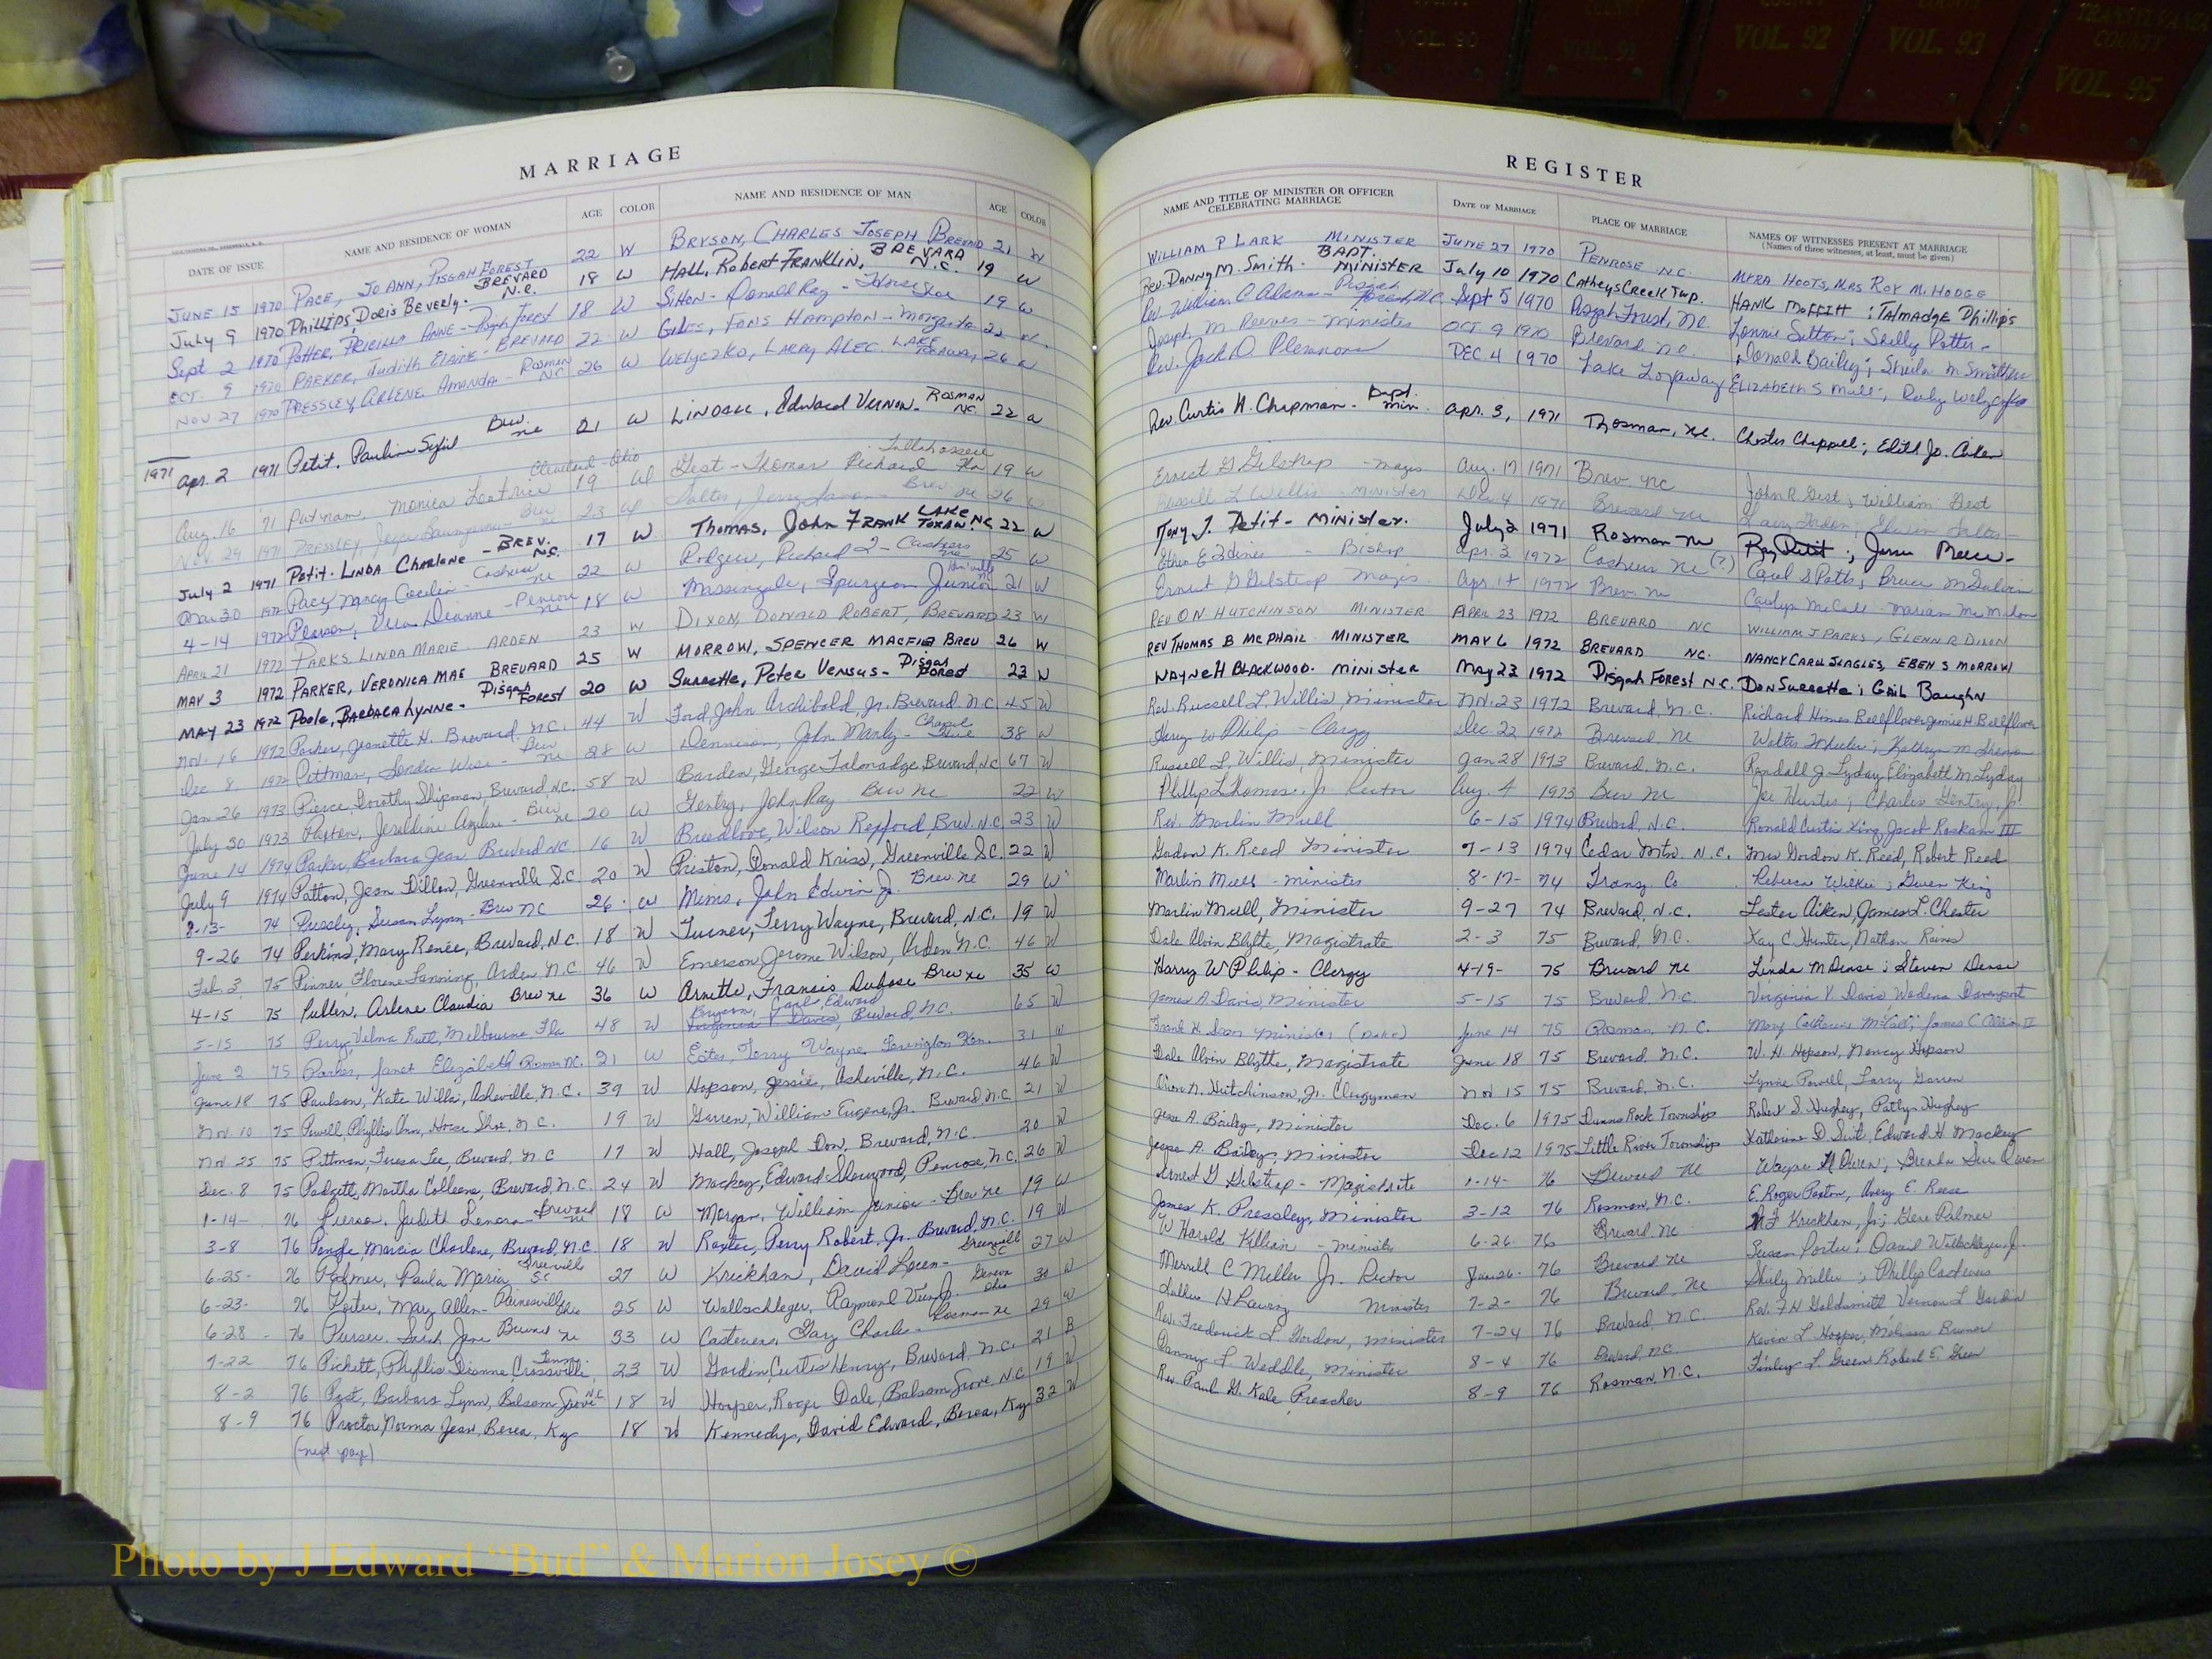 COUNTY
VOL. 90
COUNTY
VOL. 91
COUNTY
VOL. 92
COUNTY
VOL. 93
TRANSYLVANIA
COUNTY
VOL. 95
MARRIAGE
DATE OF ISSUE NAME AND RESIDENCE OF WOMAN AGE COLOR NAME AND RESIDENCE OF MAN AGE COLOR
JUNE 15 1970 PACE, JO ANN, PISGAH FOREST 22 W BRYSON, CHARLES JOSEPH BREVARD 21 W
July 9 1970 PHILLIPS, Doris Beverly. BREVARD N.C. 18 W HALL, Robert FRANKLIN, BREVARD N.C. 19 W
Sept 2 1970 POTTER, PRICILLA ANNE - Pisgah Forest 18 W Sitton - Donald Ray - Horse Shoe 19 W
OCT. 9 1970 PARKER, Judith Elaine - BREVARD 22 W FANS HAMPTON - 22 W
NOV 27 1970 PRESSLEY, ARLENE AMANDA - ROSMAN NC 26 W Welyczko, LARRY ALEC. LAKE TOXAWAY 26 W
1971 apr. 2 1971 Petit. Pauline Brev. nc 21 W LINDSEE, Edward VERNON. ROSMAN NC. 22 W
Aug. 16 '71 Putnam, Monica Cleveland-Ohio 19 W Gest - Thomas Richard Tallahassee Fla 19 W
Nov. 29 1971 PRESSLEY, Brev nc 23 W Salter, Brev nc 26 W
July 2 1971 Petit. LINDA Charlene - BREV. N.C. 17 W Thomas, John FRANK LAKE TOXAWAY NC 22 W
Mar 30 1972 Pace, Nancy - Cashiers nc 22 W Rodgers, Richard - Cashiers nc 25 W
4-14 1972 Pearson, Vera Dianne - Penrose nc 18 W Massingale, Spurgeon Junior 21 W
APRIL 21 1972 PARKS, LINDA MARIE. ARDEN 23 W DIXON, DONALD ROBERT, BREVARD 23 W
MAY 3 1972 PARKER, VERONICA MAE BREVARD 25 W MORROW, SPENCER MACFIE BREV 26 W
MAY 23 1972 Poole, BARBARA LYNNE - Pisgah FOREST 20 W Surrette, Peter Versus - Pisgah Forest 23 W
Nov. 16 1972 Parker, Jeanette H. Brevard, N.C. 44 W Ford, John Archibald, Jr. Brevard, N.C. 45 W
Dec. 8 1972 Pittman, Brev nc 28 W Dennison, John Manly - Chapel Hill 38 W
Jan 26 1973 Pierce, Dorothy Shipman, Brevard, N.C. 58 W Barden, George Talmadge, Brevard, N.C. 67 W
July 30 1973 Paxton, Jeraldine - Brev nc 20 W Gentry, John Ray. Brev nc 22 W
June 14 1974 Parker, Barbara Jean Brevard NC 16 W Breedlove, Wilson Rexford, Brev. N.C. 23 W
July 9 1974 Patton, Jean Dillon, Greenville S.C. 20 W Preston, Donald Kriss, Greenville S.C. 22 W
8-13- 74 Pressley, Susan Lynn - Brev NC 26 W Mims, John Edwin Jr. Brev nc 29 W
9-26 74 Perkins, Mary Renee, Brevard, N.C. 18 W Turner, Terry Wayne, Brevard, N.C. 19 W
Feb. 3 75 Pinner, Florence Lanning, Arden, N.C. 46 W Emerson, Jerome Wilson, Arden N.C. 46 W
4-15 75 Pullen, Arlene Claudia Brev nc 36 W Arnette, Francis Dubose Brev nc 35 W
5-15 75 Perry, Velma Ruth, Melbourne, Fla 48 W Bryson, Carl Edward Virginia V Davis, Brevard, N.C. 65 W
June 2 75 Parker, Janet Elizabeth Rosman NC. 21 W Estes, Terry Wayne Lexington Ken. 31 W
June 18 75 Paulson, Kate Willa, Asheville, N.C. 39 W Hopson, Jessie, Asheville, N.C. 46 W
Nov. 10 75 Powell, Phyllis Ann, Horse Shoe, N.C. 19 W Garren, William Eugene, Jr. Brevard, N.C. 21 W
Nov 25 75 Pittman, Teresa Lee, Brevard, N.C 17 W Hall, Joseph Don, Brevard, N.C. 20 W
Dec. 8 75 Padgett, Martha Colleena, Brevard, N.C. 24 W Mackey, Edward Sherwood, Penrose, N.C. 26 W
1-14- 76 Pierson, Judith Lenora - Brevard nc 18 W Morgan, William Junior - Brev nc 19 W
3-8 76 Pangle, Marcia Charlene, Brevard, N.C. 18 W Raxter, Perry Robert, Jr. Brevard, N.C. 19 W
6-25- 76 Palmer, Paula Maria Greenville SC 27 W Krickhan, David Loren - Greenville SC 27 W
6-23- 76 Porter, Mary Allen - Painesville Ohio 25 W Wallschleger, Raymond Jr. Geneva Ohio 30 W
6-28- 76 Purser, Sarah Jane Brevard nc 33 W Castevens, Gary Charles - Rosman nc 29 W
7-22 76 Pickett, Phyllis Dianne, Crossville, Tenn 23 W Gardin, Curtis Henry, Brevard, N.C. 21 B
8-2 76 Post, Barbara Lynn, Balsam Grove N.C. 18 W Hooper, Roger Dale, Balsam Grove, N.C 19 W
8-9 76 Proctor, Norma Jean, Berea, Ky 18 W Kennedy, David Edward, Berea, Ky 32 W
(next page)
REGISTER
NAME AND TITLE OF MINISTER OR OFFICER CELEBRATING MARRIAGE DATE OF MARRIAGE PLACE OF MARRIAGE NAMES OF WITNESSES PRESENT AT MARRIAGE
(Names of three witnesses, at least, must be given)
WILLIAM P LARK MINISTER JUNE 27 1970 PENROSE N.C. MYRA HOOTS, MRS ROY M. HODGE
Rev. Danny M. Smith - BAPT. MINISTER July 10 1970 Catheys Creek Twp. HANK MOFFITT ; TALMADGE Phillips
Rev William C Adams - Pisgah Forest, N.C. Sept 5 1970 Pisgah Forest, NC. Lonnie Sitton ; Shelly Potter -
Joseph M. Reeves - Minister OCT. 9 1970 Brevard nc Donald Bailey ; Sheila M. Smathers
Rev. Jack D. Plemmons DEC. 4 1970 Lake Toxaway ELIZABETH S Mull ; Ruby Welyczko
Rev Curtis H. Chapman - Bapt. Min. apr. 3, 1971 Rosman, N.C. Chester Chappell ; Edith Jo.
Ernest G Gilstrap - Magis Aug. 17 1971 Brev NC John R. Gest ; William Gest
Russell L Willis - MINISTER Dec 4 1971 Brevard nc
Tony J. Petit - Minister. July 2 1971 Rosman nc Ray Petit ; Jesse Meece -
- Bishop apr. 3 1972 Cashiers nc (?) Carol S Potts ; Bruce
Ernest G Gilstrap Magis. apr 14 1972 Brev. nc Carolyn McCall - Marian McMahan
REV O.N. HUTCHINSON MINISTER APRIL 23 1972 BREVARD NC WILLIAM J. PARKS, GLENN R DIXON
REV THOMAS B MCPHAIL MINISTER MAY 6 1972 BREVARD NC. NANCY CAROL SEAGLES, EBEN S MORROW
WAYNE H BLACKWOOD. MINISTER MAY 23 1972 Pisgah FOREST N.C. Don Surrette ; Gail Baughn
Rev. Russell L. Willis, Minister Nov. 23 1972 Brevard, N.C. Richard Himes Bellflower, Jennie H. Bellflower
Harry W Philip - Clergy Dec. 22 1972 Brevard, NC Walter Wheeler ; Kathryn M
Russell L. Willis, Minister Jan 28 1973 Brevard, N.C. Randall J. Lyday, Elizabeth M Lyday
Phillip L Thomas, Jr. Rector Aug. 4 1973 Brev NC Joe Hunter ; Charles Gentry, Jr.
Rev. Marlin Mull 6-15 1974 Brevard, N.C. Ronald Curtis King, Jacob Roskam III
Gadon K. Reed Minister 7-13 1974 Cedar Mtn. N.C. Mrs Gordon K. Reed, Robert Reed
Marlin Mull - minister 8-17- 74 Transy. Co Rebecca Wilkie ; Gwen King
Marlin Mull, Minister 9-27 74 Brevard, N.C. Lester Aiken, James L. Chester
Dale Alvin Blythe, Magistrate 2-3 75 Brevard, N.C. Kay C. Hunter, Nathan Raines
Harry W Philip - Clergy 4-19- 75 Brevard NC Linda M Dense ; Steven Dense
James A. Davis Minister 5-15 75 Brevard, N.C. Virginia V. Davis Wadena Davenport
Frank H. Sean Minister (Duke) June 14 75 Rosman, N.C. Mary Catherine McCall ; James C. II
Dale Alvin Blythe, Magistrate June 18 75 Brevard, N.C. W. H. Hopson, Nancy Hopson
Orion N. Hutchinson, Jr. Clergyman Nov 15 75 Brevard, N.C. Lynne Powell, Larry Garren
Jesse A. Bailey, Minister Dec. 6 1975 Dunns Rock Township Robert S. Hughey, Patty Hughey
Jesse A. Bailey, Minister Dec 12 1975 Little River Township Katherine D. Edward H. Mackey
Ernest G Gilstrap - Magistrate 1-14- 76 Brevard NC Wayne H Owen ; Brenda Sue Owen
James K. Pressley, Minister 3-12 76 Rosman, N.C. E. Roger Paxton, Avery E. Reece
W Harold Killian - minister 6-26 76 Brevard NC Krickhan, Jr ; Gere Palmer
Merrill C Miller Jr. Rector Jun 26- 76 Brevard NC Susan Porter ; David Wallschleger, Jr.
H Lowry Minister 7-2- 76 Brevard, NC Shirley Miller ; Phillip Castevens
Rev. Frederick L. Gordon, Minister 7-24 76 Brevard, N.C. Rev. F.N Goldsmith Vernon L Gardin
Danny L Weddle, Minister 8-4 76 Brevard, NC Kevin L Hooper, Melissa
Rev. Paul G. Kale Preacher 8-9 76 Rosman, N.C. Finley L Green Robert E. Green
Photo by J Edward “Bud” & Marion Josey ©